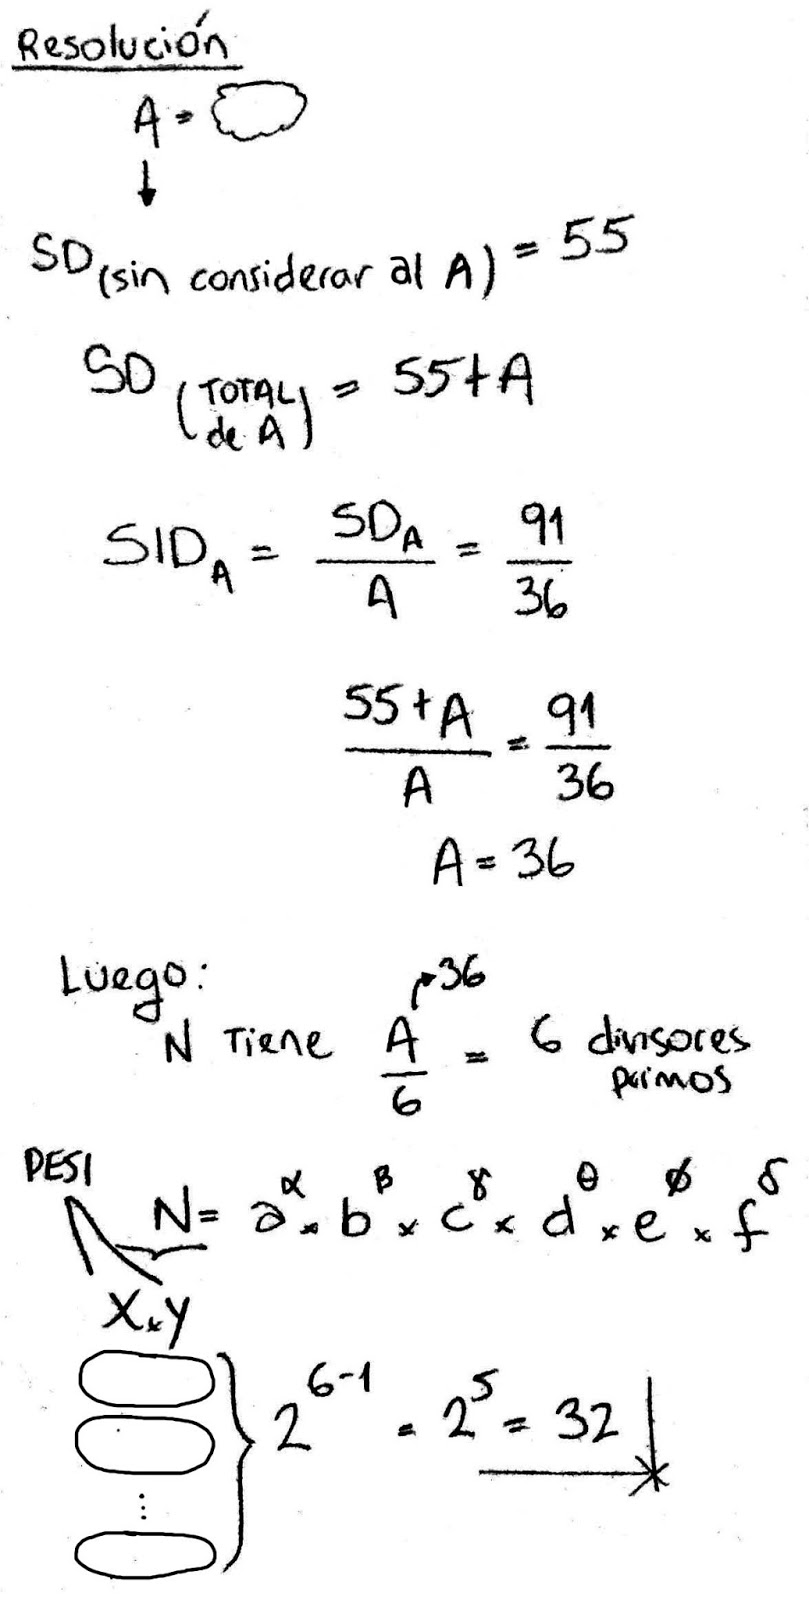 Resolución
A =
SD (sin considerar al A) = 55
SD (TOTAL de A) = 55+A
SID_A = SD_A / A = 91 / 36
55+A / A = 91 / 36
A = 36
Luego:
N Tiene A / 6 = 6 divisores primos
36
PESI
N = a^α × b^β × c^γ × d^θ × e^ϕ × f^δ
X × y
2^(6-1) = 2^5 = 32